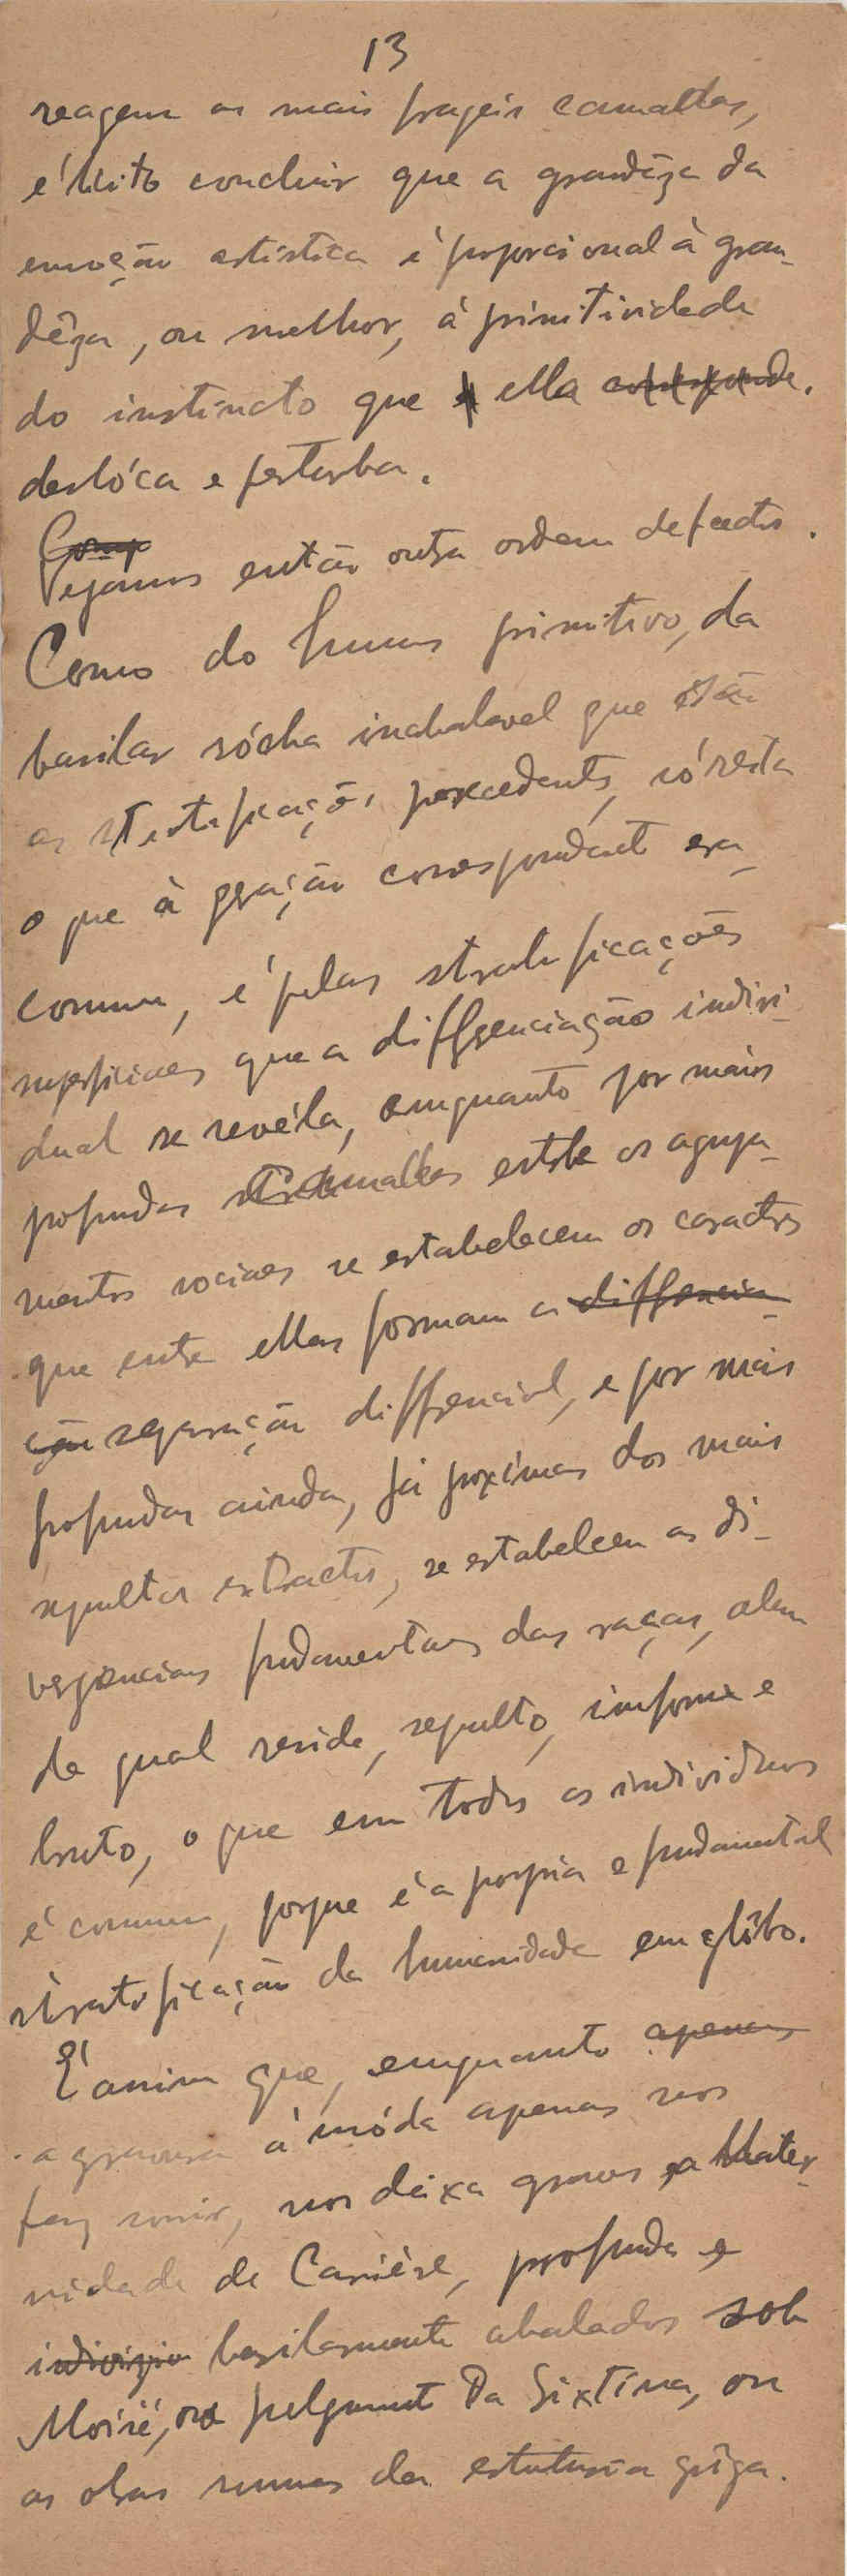 13
reagem as mais frageis camadas,
é licito concluir que a grandêza da
emoção artistica é proporcional à gran-
dêza, ou melhor, á primitividade
do instincto que ella corresponde.
deslóca e perturba.
Como
Vejamos então outra ordem de factos.
Como do humus primitivo, da
basilar rócha inabalavel que são
as stratificações precedentes, só resta
o que à geração correspondente era
commum, é pelas stratificações
superficiaes que a differenciação indivi-
dual se revéla, emquanto por mais
profundas entre os agrupa-
mentos sociaes se estabelecem os caractres
que entre elles formam a differencia-
ção separação differencial, e por mais
profundas ainda, já proximas dos mais
sepultos extractos, se estabelecem as di-
vergencias fundamentaes das raças, alem
da qual reside, sepulto, informe e
bruto, o que em todos os individuos
é commum, porque é a propria e fundamental
stratificação da humanidade em glôbo.
É assim que, emquanto apenas
a gravura à móda apenas nos
faz sorrir, nos deixa graves a Mater-
nidade de Carrière, profunda e
indivizio basilarmente abalados sob
Moisé, ou julgamento Da Sixtina, ou
as obras summas da estatuaria grêga.